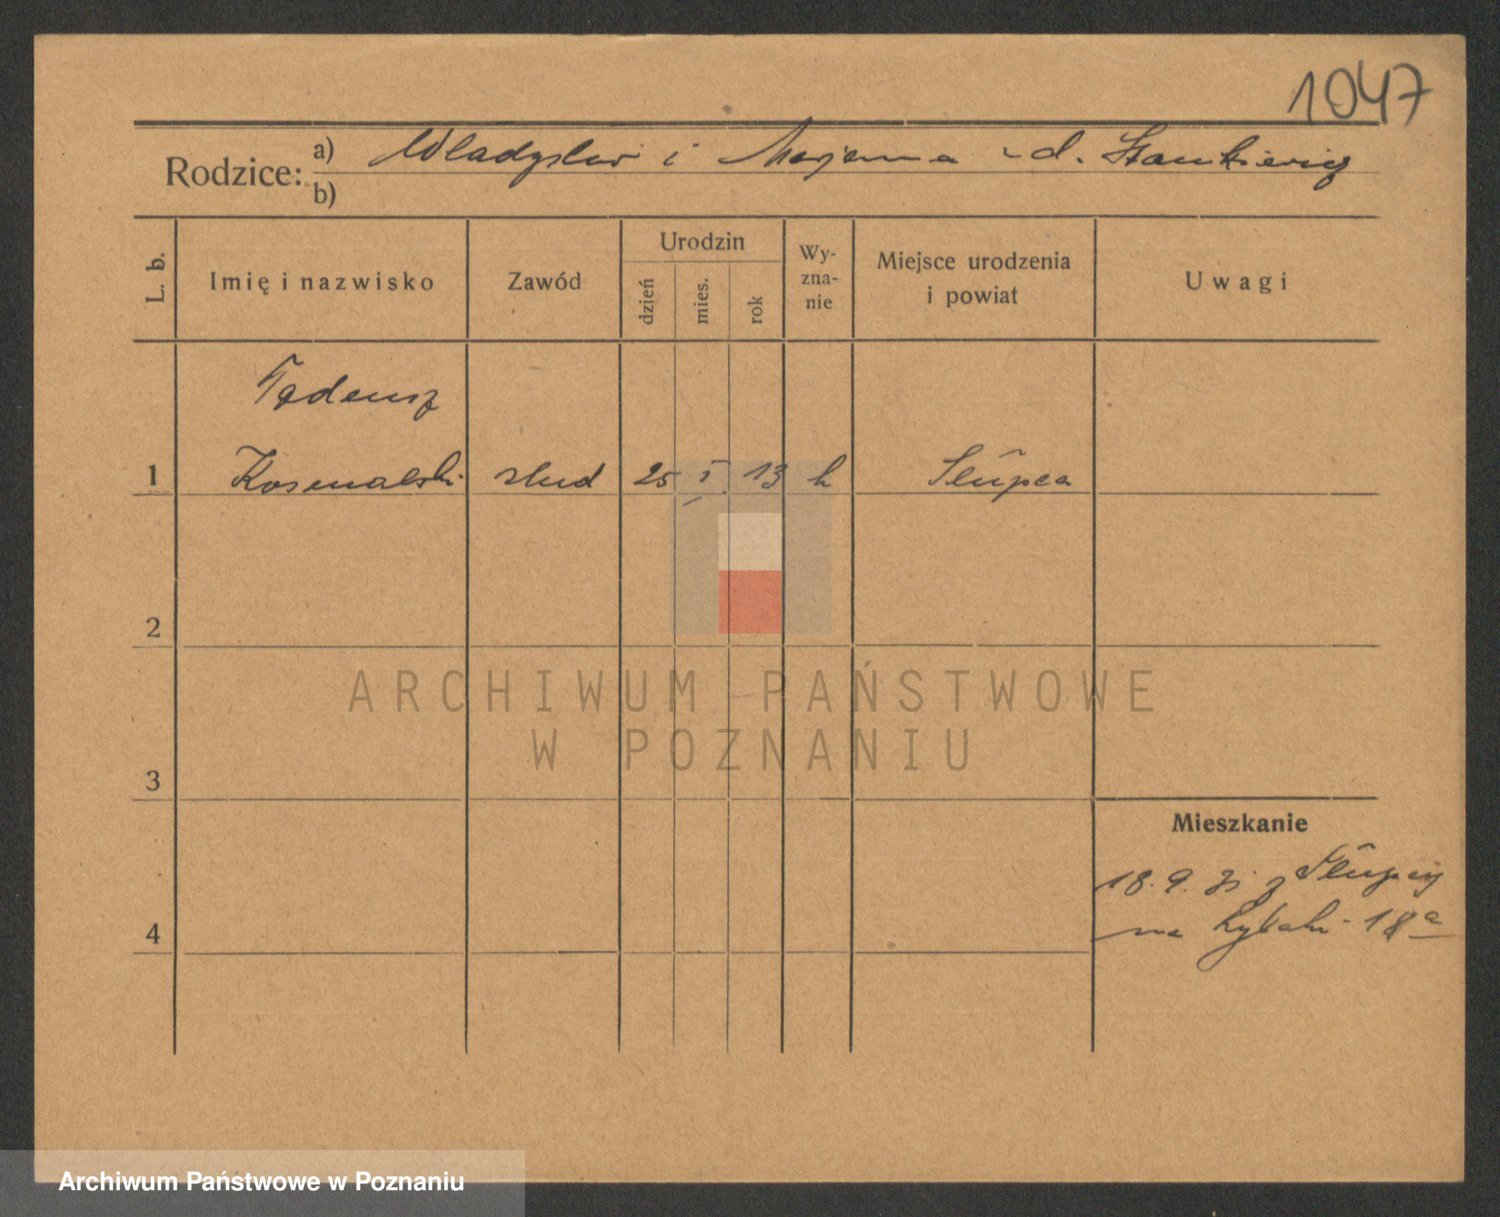 1047
Rodzice: a) Władysław i Marjanna z d. Stankiewicz
b)
L. b.
Imię i nazwisko
Zawód
Urodzin
dzień
mies.
rok
Wy-
zna-
nie
Miejsce urodzenia
i powiat
Uwagi
Tadeusz
1 Kosmalski stud 25 I. 13 k Słupca
2
ARCHIWUM PAŃSTWOWE
W POZNANIU
3
Mieszkanie
18. 9. 31 z Słupcy
4 na Rybaki 18a
Archiwum Państwowe w Poznaniu